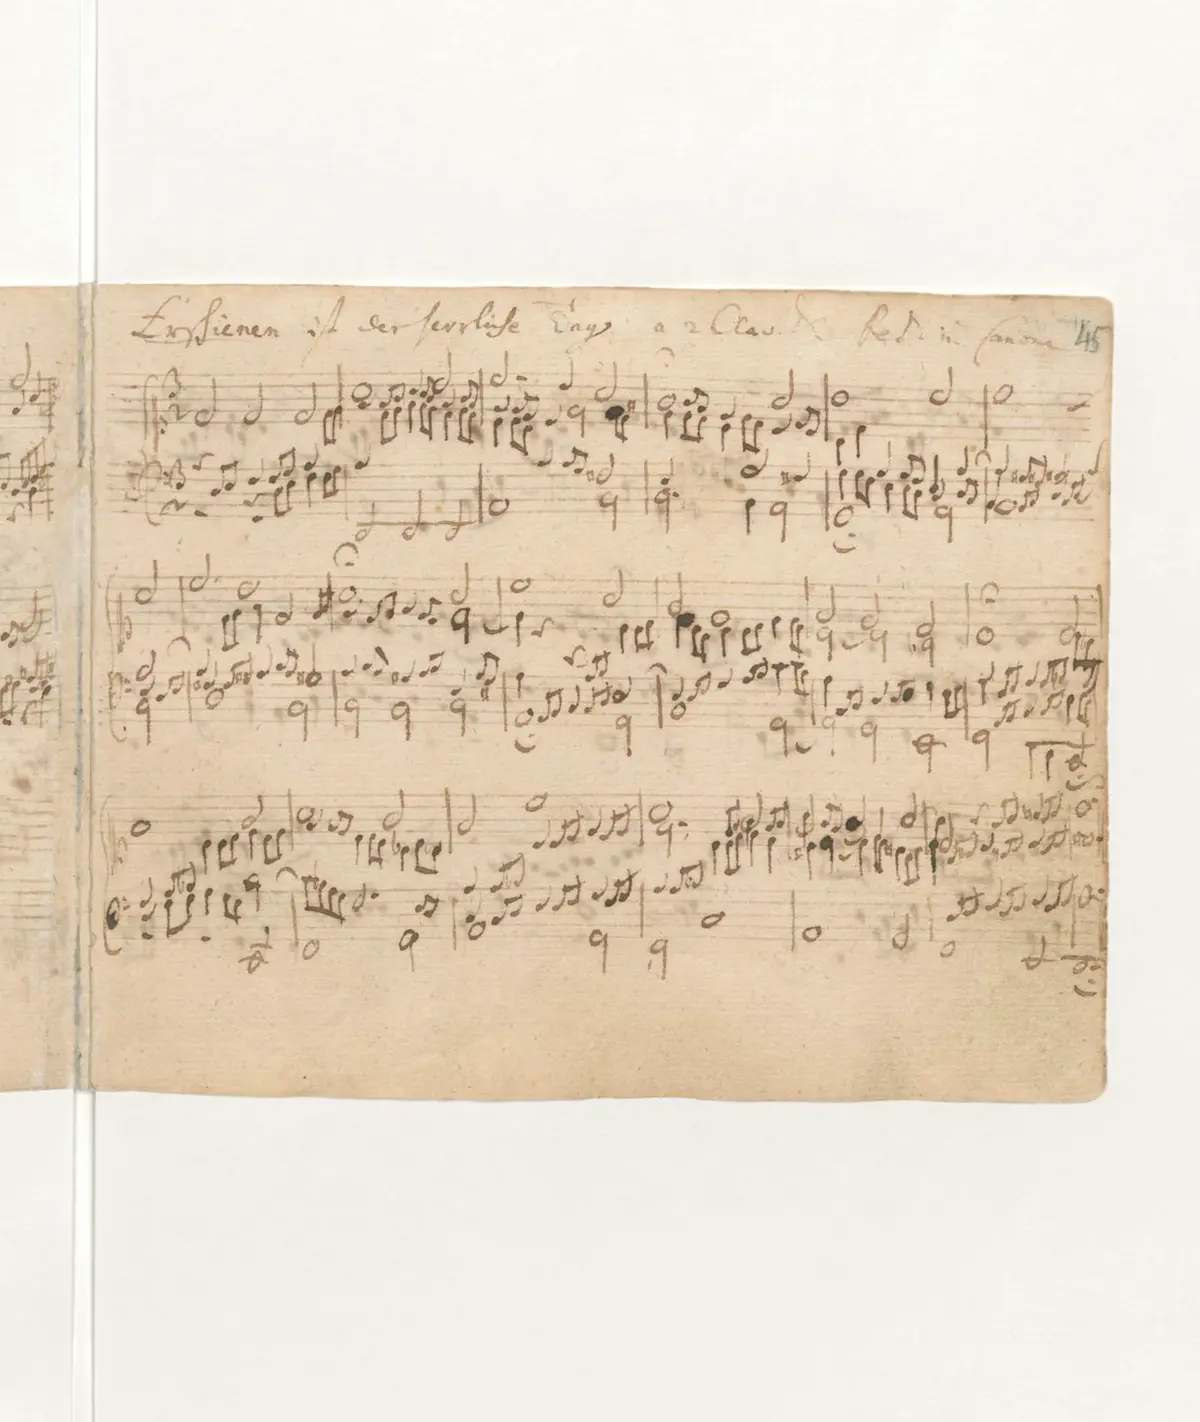 Erschienen ist der herrliche Tag a 2 Clav. & Ped. in Canone 45
3
2
3
2